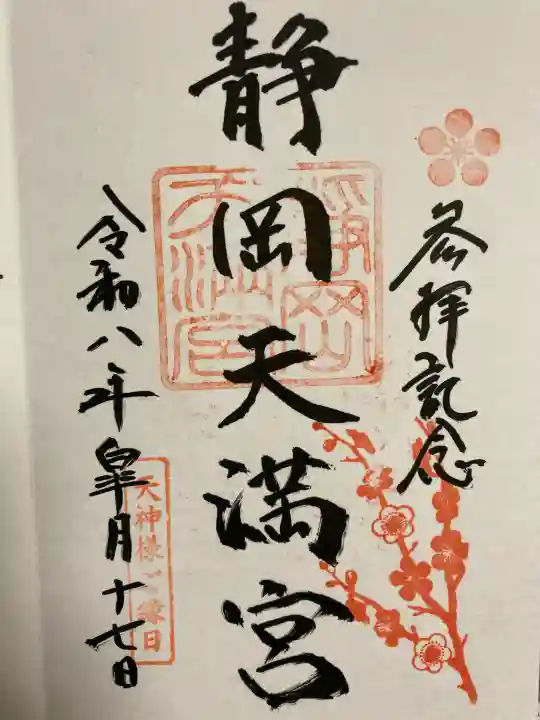 参拝記念
静岡天満宮
静岡天満宮
令和八年皐月十七日
天神様ご縁日